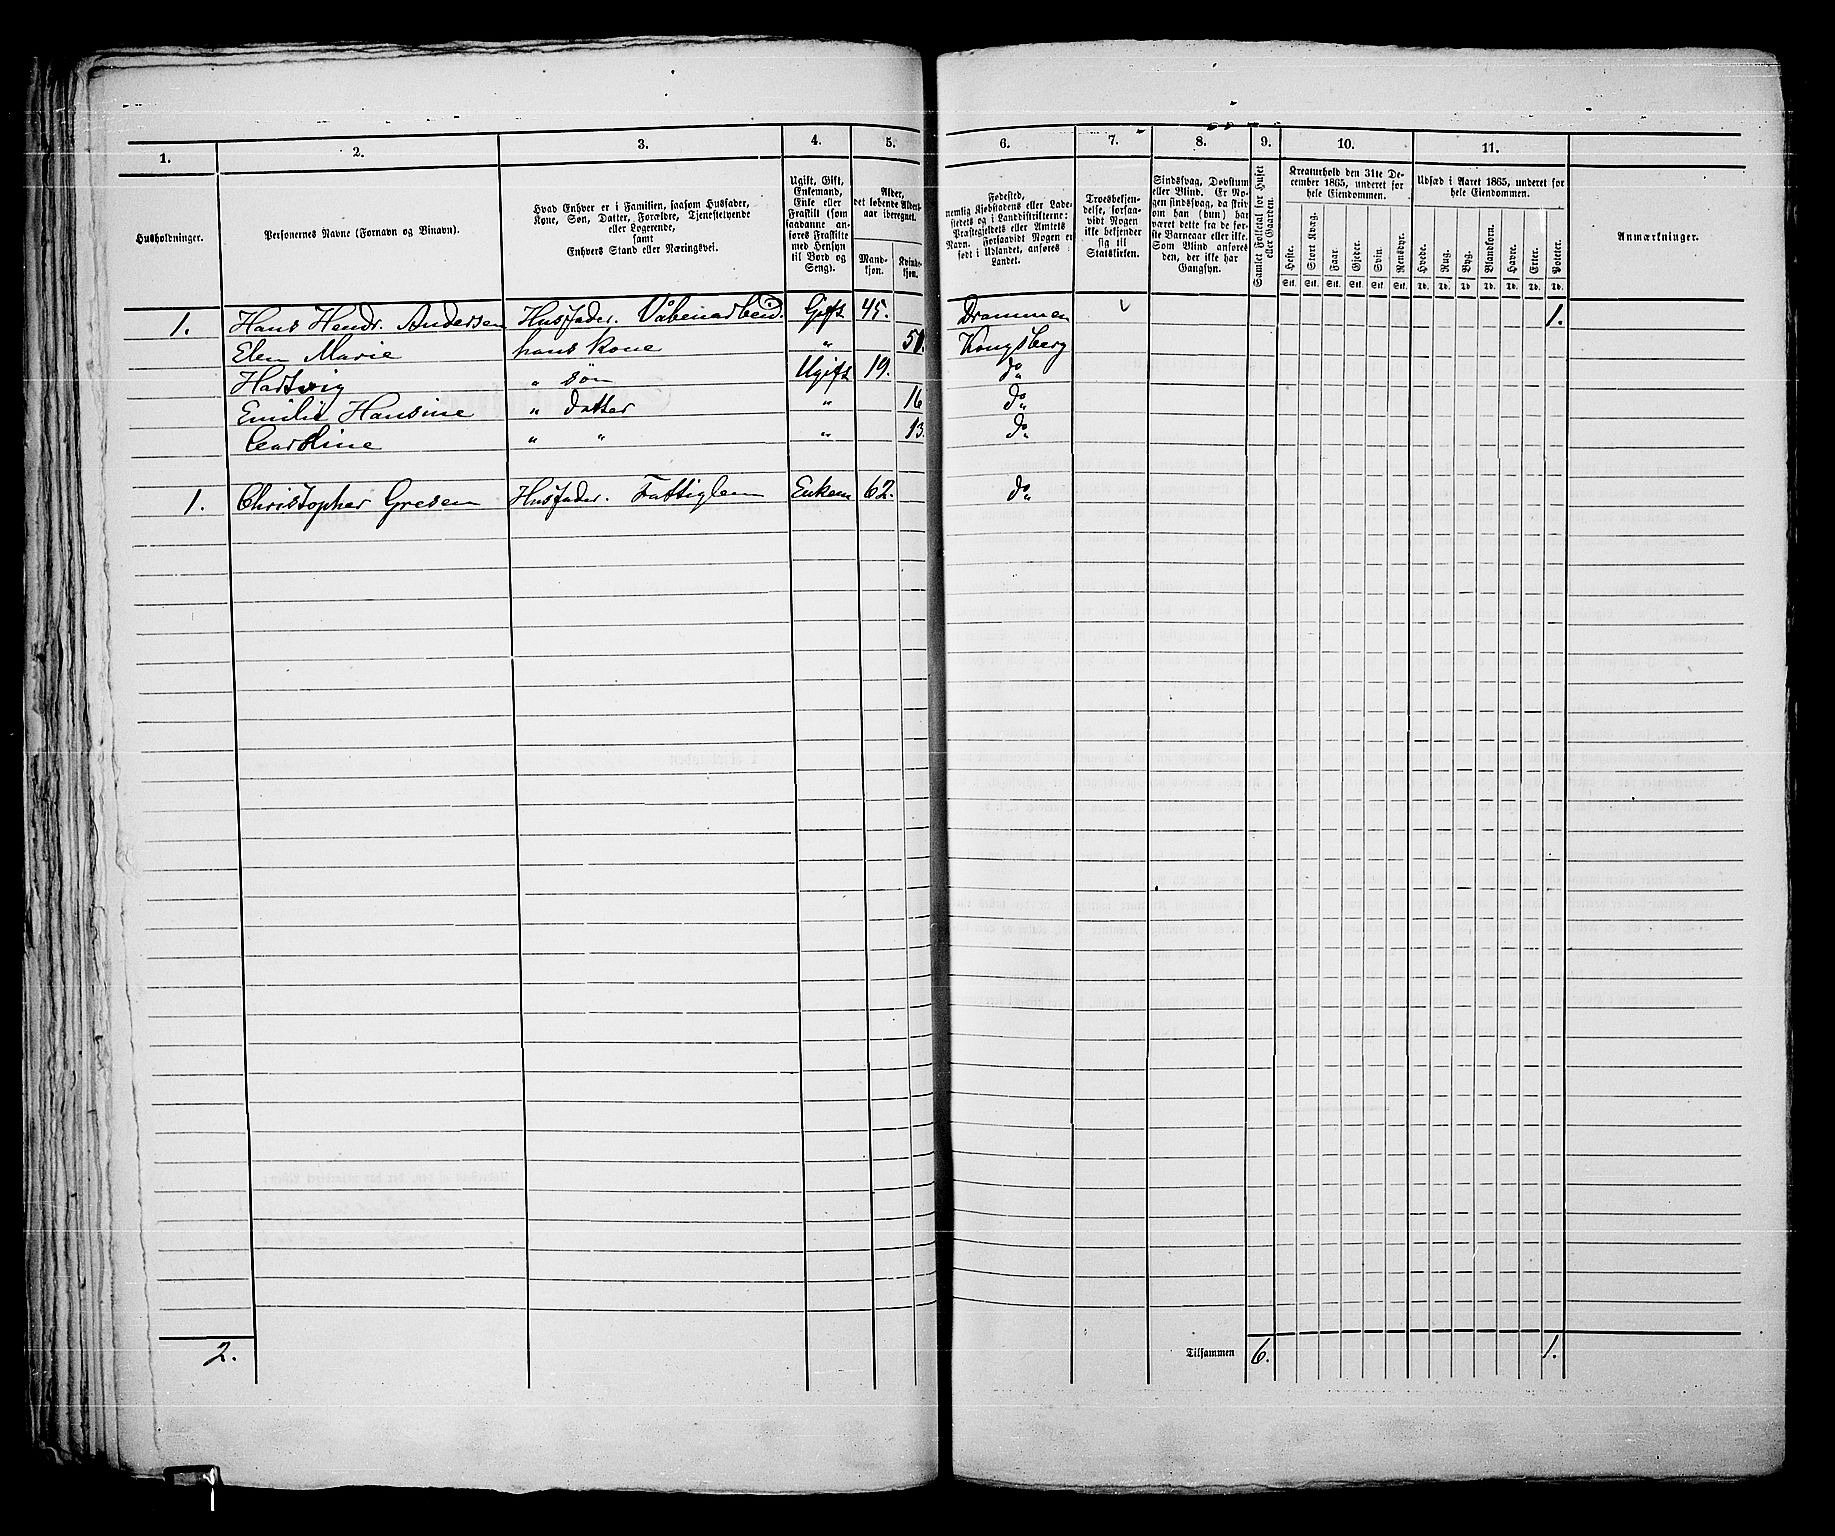 1. 2. 3. 4. 5. 6. 7. 8. 9. 10. 11.
Husholdninger.
Personernes Navne (Fornavn og Binavn).
Hvad Enhver er i Familien, saasom Husfader,
Kone, Søn, Datter, Forældre, Tjenestetyende
eller Logerende,
samt
Enhvers Stand eller Næringsvei.
Ugift, Gift,
Enkemand,
Enke eller
Fraskilt (som
saadanne an-
føres Fraskilte
med Hensyn
til Bord og
Seng).
Alder,
det løbende Alders-
aar iberegnet.
Mand-
kjøn.
Kvinde-
kjøn.
Fødested,
nemlig Kjøbstadens eller Lade-
stedets og i Landdistrikterne:
Præstegjeldets eller Amtets
Navn. Forsaavidt Nogen er
født i Udlandet, anføres
Landet.
Troesbekjen-
delse, forsaa-
vidt Nogen
ikke bekjender
sig til
Statskirken.
Sindssvag, Døvstum
eller Blind. Er No-
gen sindssvag, da skriv
om han (hun) har
været dette fra de før-
ste Barneaar eller ikke.
Som Blind anføres
den, der ikke har
Gangsyn.
Samlet Folketal for Huset
eller Gaarden.
Kreaturhold den 31te De-
cember 1865, underet for
hele Eiendommen.
Heste. Stort Kvæg. Faar. Gjeder. Svin. Rensdyr.
Stk. Stk. Stk. Stk. Stk. Stk.
Udsæd i Aaret 1865, underet for
hele Eiendommen.
Hvede. Rug. Byg. Blandkorn. Havre. Erter. Poteter.
Td. Td. Td. Td. Td. Td. Td.
Anmærkninger.
1. Hans Hendr. Andersen Husfader. Våbenarbeid. Gift 45. Drammen 1.
Elen Marie hans Kone „ Kongsberg
Hartvig „ søn Ugift 19. do
Emilie Hansine „ datter „ 16 do
Caroline „ „ „ 13. do
1. Christopher Gresen Husfader. Fattiglem Enkem 62. do
2. Tilsammen 6. 1.